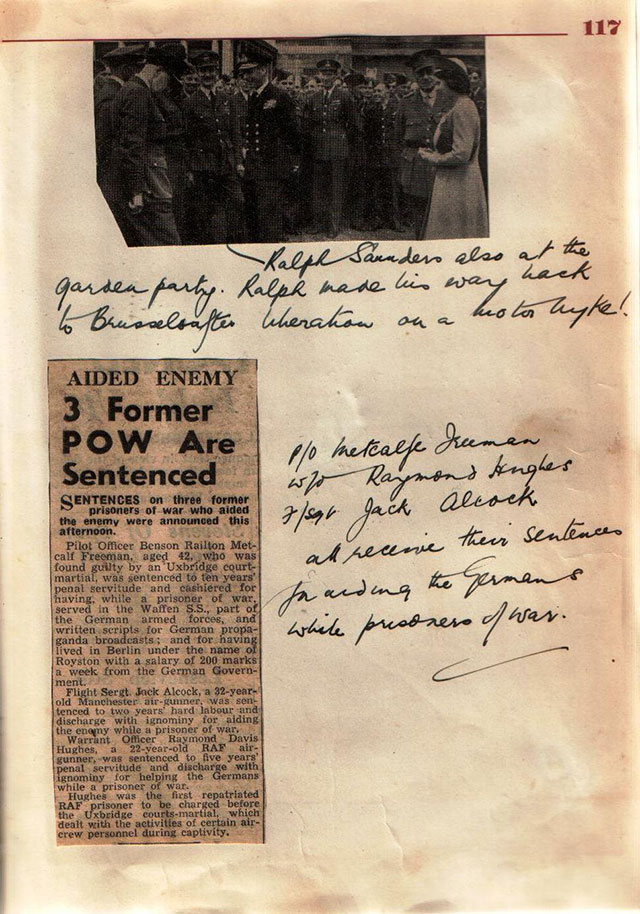 117
Ralph Saunders also at the
garden party. Ralph made his way back
to Brussels after liberation on a motor byke!
AIDED ENEMY
3 Former
POW Are
Sentenced
SENTENCES on three former
prisoners of war who aided
the enemy were announced this
afternoon.
Pilot Officer Benson Railton Met-
calf Freeman, aged 42, who was
found guilty by an Uxbridge court-
martial, was sentenced to ten years'
penal servitude and cashiered for
having, while a prisoner of war,
served in the Waffen S.S., part of
the German armed forces, and
written scripts for German propa-
ganda broadcasts; and for having
lived in Berlin under the name of
Royston with a salary of 200 marks
a week from the German Govern-
ment.
Flight Sergt. Jack Alcock, a 32-year-
old Manchester air-gunner, was sen-
tenced to two years' hard labour and
discharge with ignominy for aiding
the enemy while a prisoner of war.
Warrant Officer Raymond Davis
Hughes, a 22-year-old RAF air-
gunner, was sentenced to five years'
penal servitude and discharge with
ignominy for helping the Germans
while a prisoner of war.
Hughes was the first repatriated
RAF prisoner to be charged before
the Uxbridge courts-martial, which
dealt with the activities of certain air-
crew personnel during captivity.
P/O Metcalfe Freeman
W/O Raymond Hughes
F/Sgt Jack Alcock
all receive their sentences
for aiding the Germans
while prisoners of war.